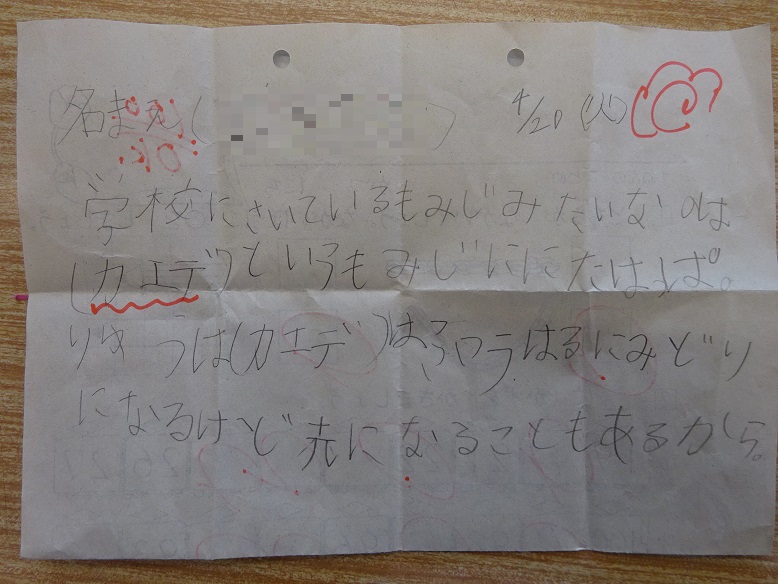 名まえ( ) 4/20(火)
OK
学校にさいているもみじみたいなのは
(カエデ)というもみじににたはっぱ。
りゆうは(カエデ)はふつうはるにみどり
になるけど赤になることもあるから。